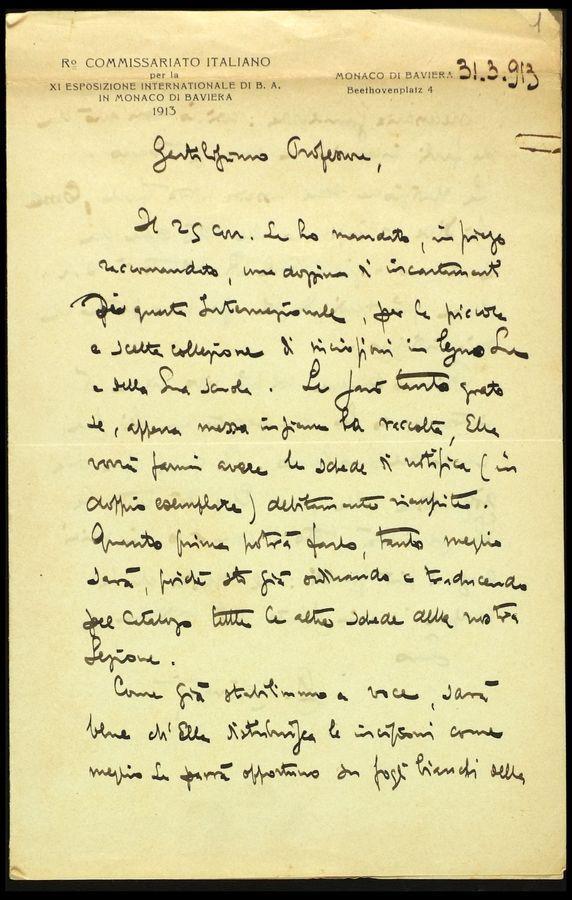 1
Rº COMMISSARIATO ITALIANO
per la
XI ESPOSIZIONE INTERNATIONALE DI B. A.
IN MONACO DI BAVIERA
1913
MONACO DI BAVIERA 31.3.913
Beethovenplatz 4
Gentilissimo Professore,
Il 25 corr. Le ho mandato, in piego
raccomandato, una dozzina di incartamenti
per questa Internazionale, per la piccola
e scelta collezione di incisioni in legno Sue
e della Sua Scuola. Le farò tanto grato
se, appena messa insieme la raccolta, Ella
vorrà farmi avere le schede di notifica (in
doppio esemplare) debitamente riempite.
Quanto prima potrà farlo, tanto meglio
sarà, poichè sto già ordinando e traducendo
pel Catalogo tutte le altre schede della nostra
Sezione.
Come già stabilimmo a voce, sarà
bene ch'Ella distribuisca le incisioni come
meglio Le parrà opportuno su fogli bianchi della